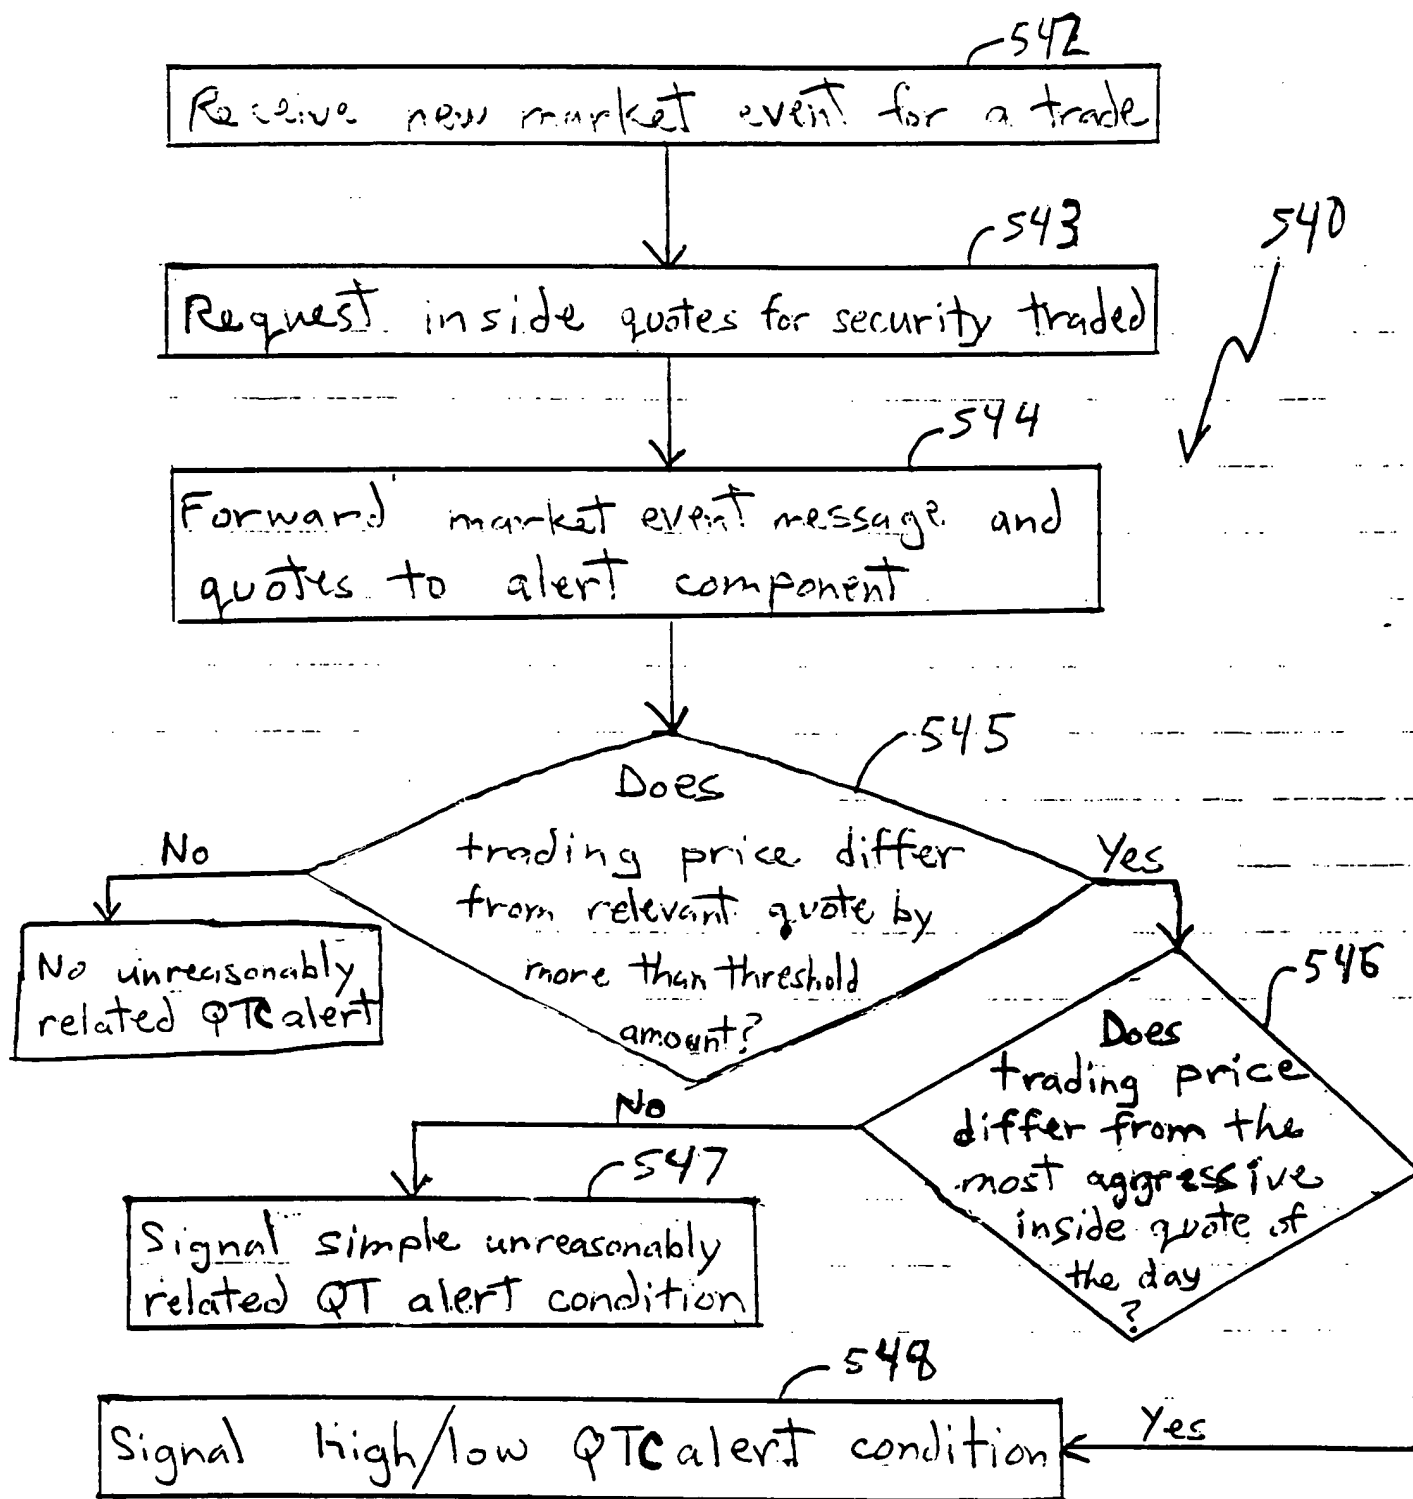 542
Receive new market event for a trade
543
540
Request inside quotes for security traded
544
Forward market event message and
quotes to alert component
545
Does
No
trading price differ
Yes
from relevant quote by
more than threshold
amount?
No unreasonably
related QTC alert
546
Does
trading price
differ from the
most aggressive
inside quote of
the day
?
No
547
Signal simple unreasonably
related QT alert condition
548
Signal High/low QTC alert condition
Yes